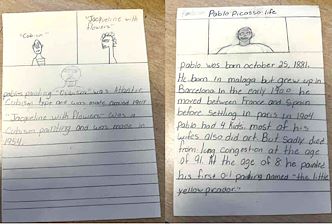 "Cubism"
"Jacqueline with
flowers"
pablos painting "Cubism" was Atlantic
Cubism type and was made around 1907
"Jacqueline with Flowers" was a
Cubism painting and was made in
1954.
Pablo Picasso life
pablo was born october 25, 1881.
He born in malaga but grew up in
Barcelona In the early 1900 he
moved between France and Spain
before settling in paris in 1904
pablo had 4 kids, most of his
wifes also did art. But sadly died
from lung congestion at the age
of 91. At the age of 8 he painted
his first oil painting named "the little
yellow picador"